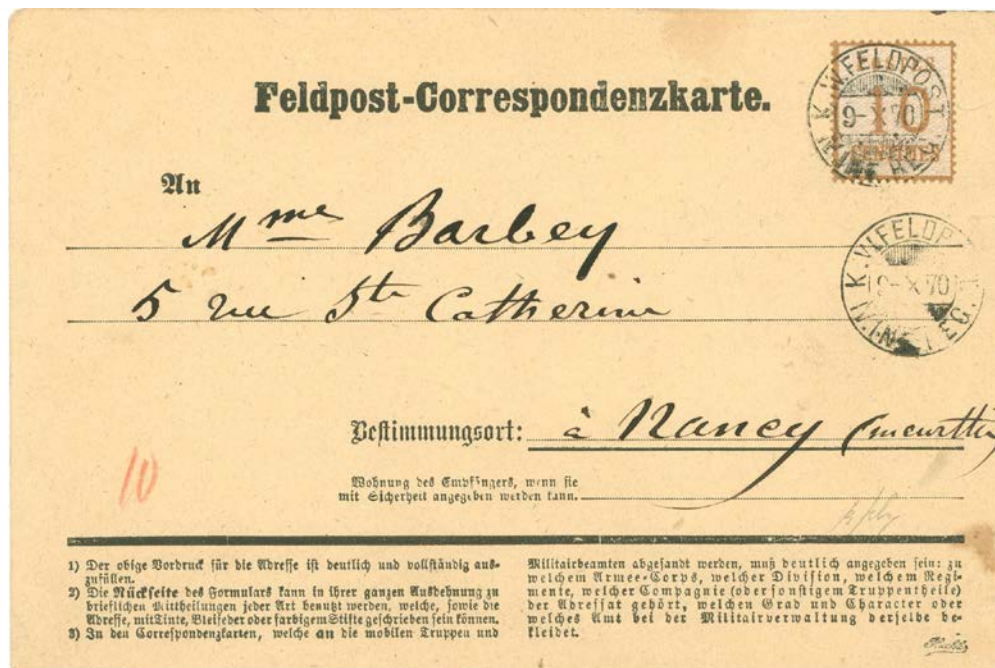 Feldpost-Correspondenzkarte.
K.W.FELDPOST
9-X 70
10
CENTIMES
An
Mme Barbey
5 rue Ste Catherine
K.W.FELDP
9-X 70
Bestimmungsort: à Nancy (meurthe
10
Wohnung des Empfängers, wenn sie
mit Sicherheit angegeben werden kann.
1) Der obige Vordruck für die Adresse ist deutlich und vollständig aus-
zufüllen.
2) Die Rückseite des Formulars kann in ihrer ganzen Ausdehnung zu
brieflichen Mittheilungen jeder Art benutzt werden, welche, sowie die
Adresse, mit Tinte, Bleifeder oder farbigem Stifte geschrieben sein können.
3) In den Correspondenzkarten, welche an die mobilen Truppen und
Militairbeamten abgesandt werden, muß deutlich angegeben sein: zu
welchem Armee-Corps, welcher Division, welchem Regi-
mente, welcher Compagnie (oder sonstigem Truppentheile)
der Adressat gehört, welchen Grad und Character oder
welches Amt bei der Militairverwaltung derselbe be-
kleidet.